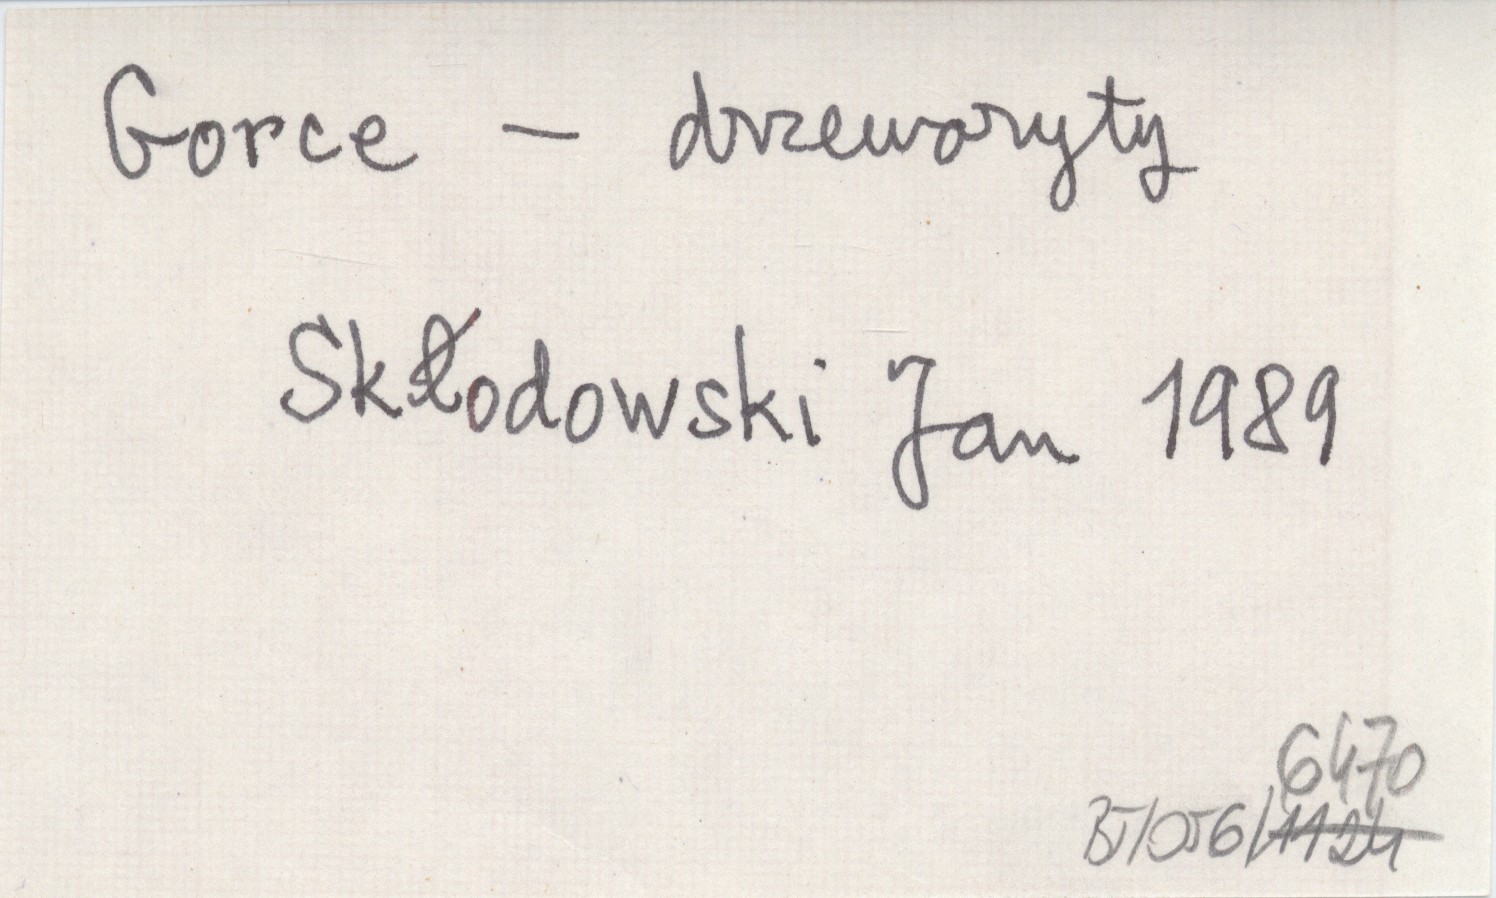 Gorce – drzeworyty
Skłodowski Jan 1989
6470
BJ/OT6/1124